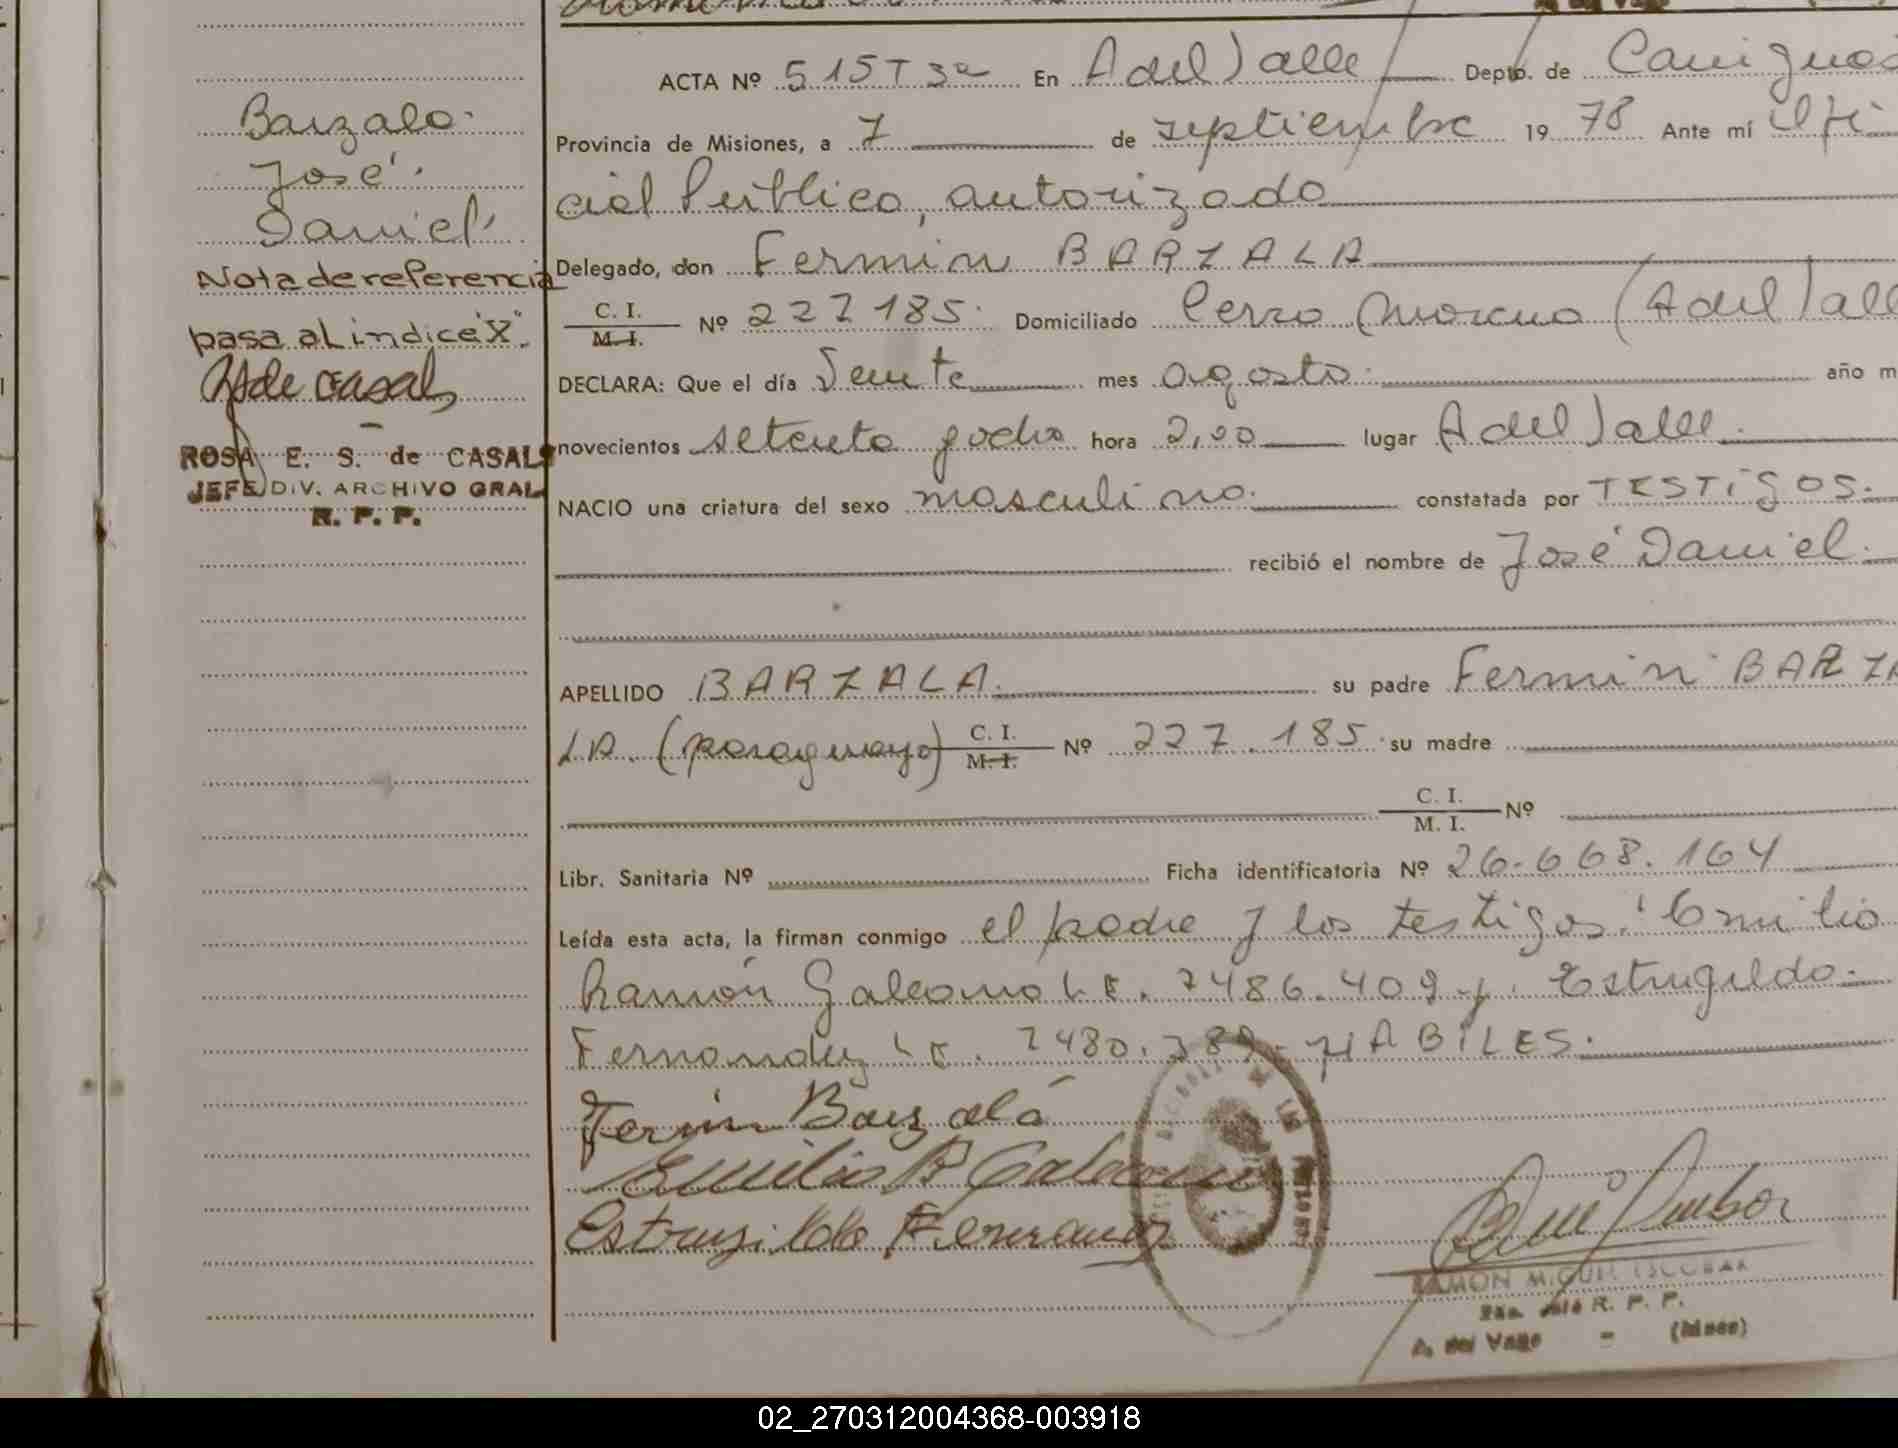 Barzala.
José.
Daniel
Nota de referencia
pasa al indice "X".
R.S de Casals
ROSA E. S. de CASALS
JEFE DIV. ARCHIVO GRAL
R. P. P.
ACTA Nº 515 T 3ª En A del Valle Depto. de Cainguás
Provincia de Misiones, a 7 de septiembre 1978 Ante mí Ofi
cial Público, autorizado
Delegado, don Fermin BARZALA
C. I. / M. I. Nº 227185. Domiciliado Cerro Moreno (A del Valle
DECLARA: Que el día Veinte mes agosto. año m
novecientos setenta y ocho hora 2,00 lugar A del Valle.
NACIO una criatura del sexo masculino. constatada por TESTIGOS.
recibió el nombre de José Daniel.
APELLIDO BARZALA. su padre Fermin BARZA
LA. (paraguayo) C. I. / M. I. Nº 227.185 su madre
C. I. / M. I. Nº
Libr. Sanitaria Nº Ficha identificatoria Nº 26.668.164
Leída esta acta, la firman conmigo el padre y los testigos: Emilio
Ramón Galeano L.E. 7486.409 y. Estrugildo.
Fernandez L.E. 7480.389- HABILES.
Fermin Barzalá
Emilio R Galeano
Estrugildo Fernandez
RAMON MIGUEL ESCOBAR
R. P. P.
A. del Valle - (Mnes)
02_270312004368-003918